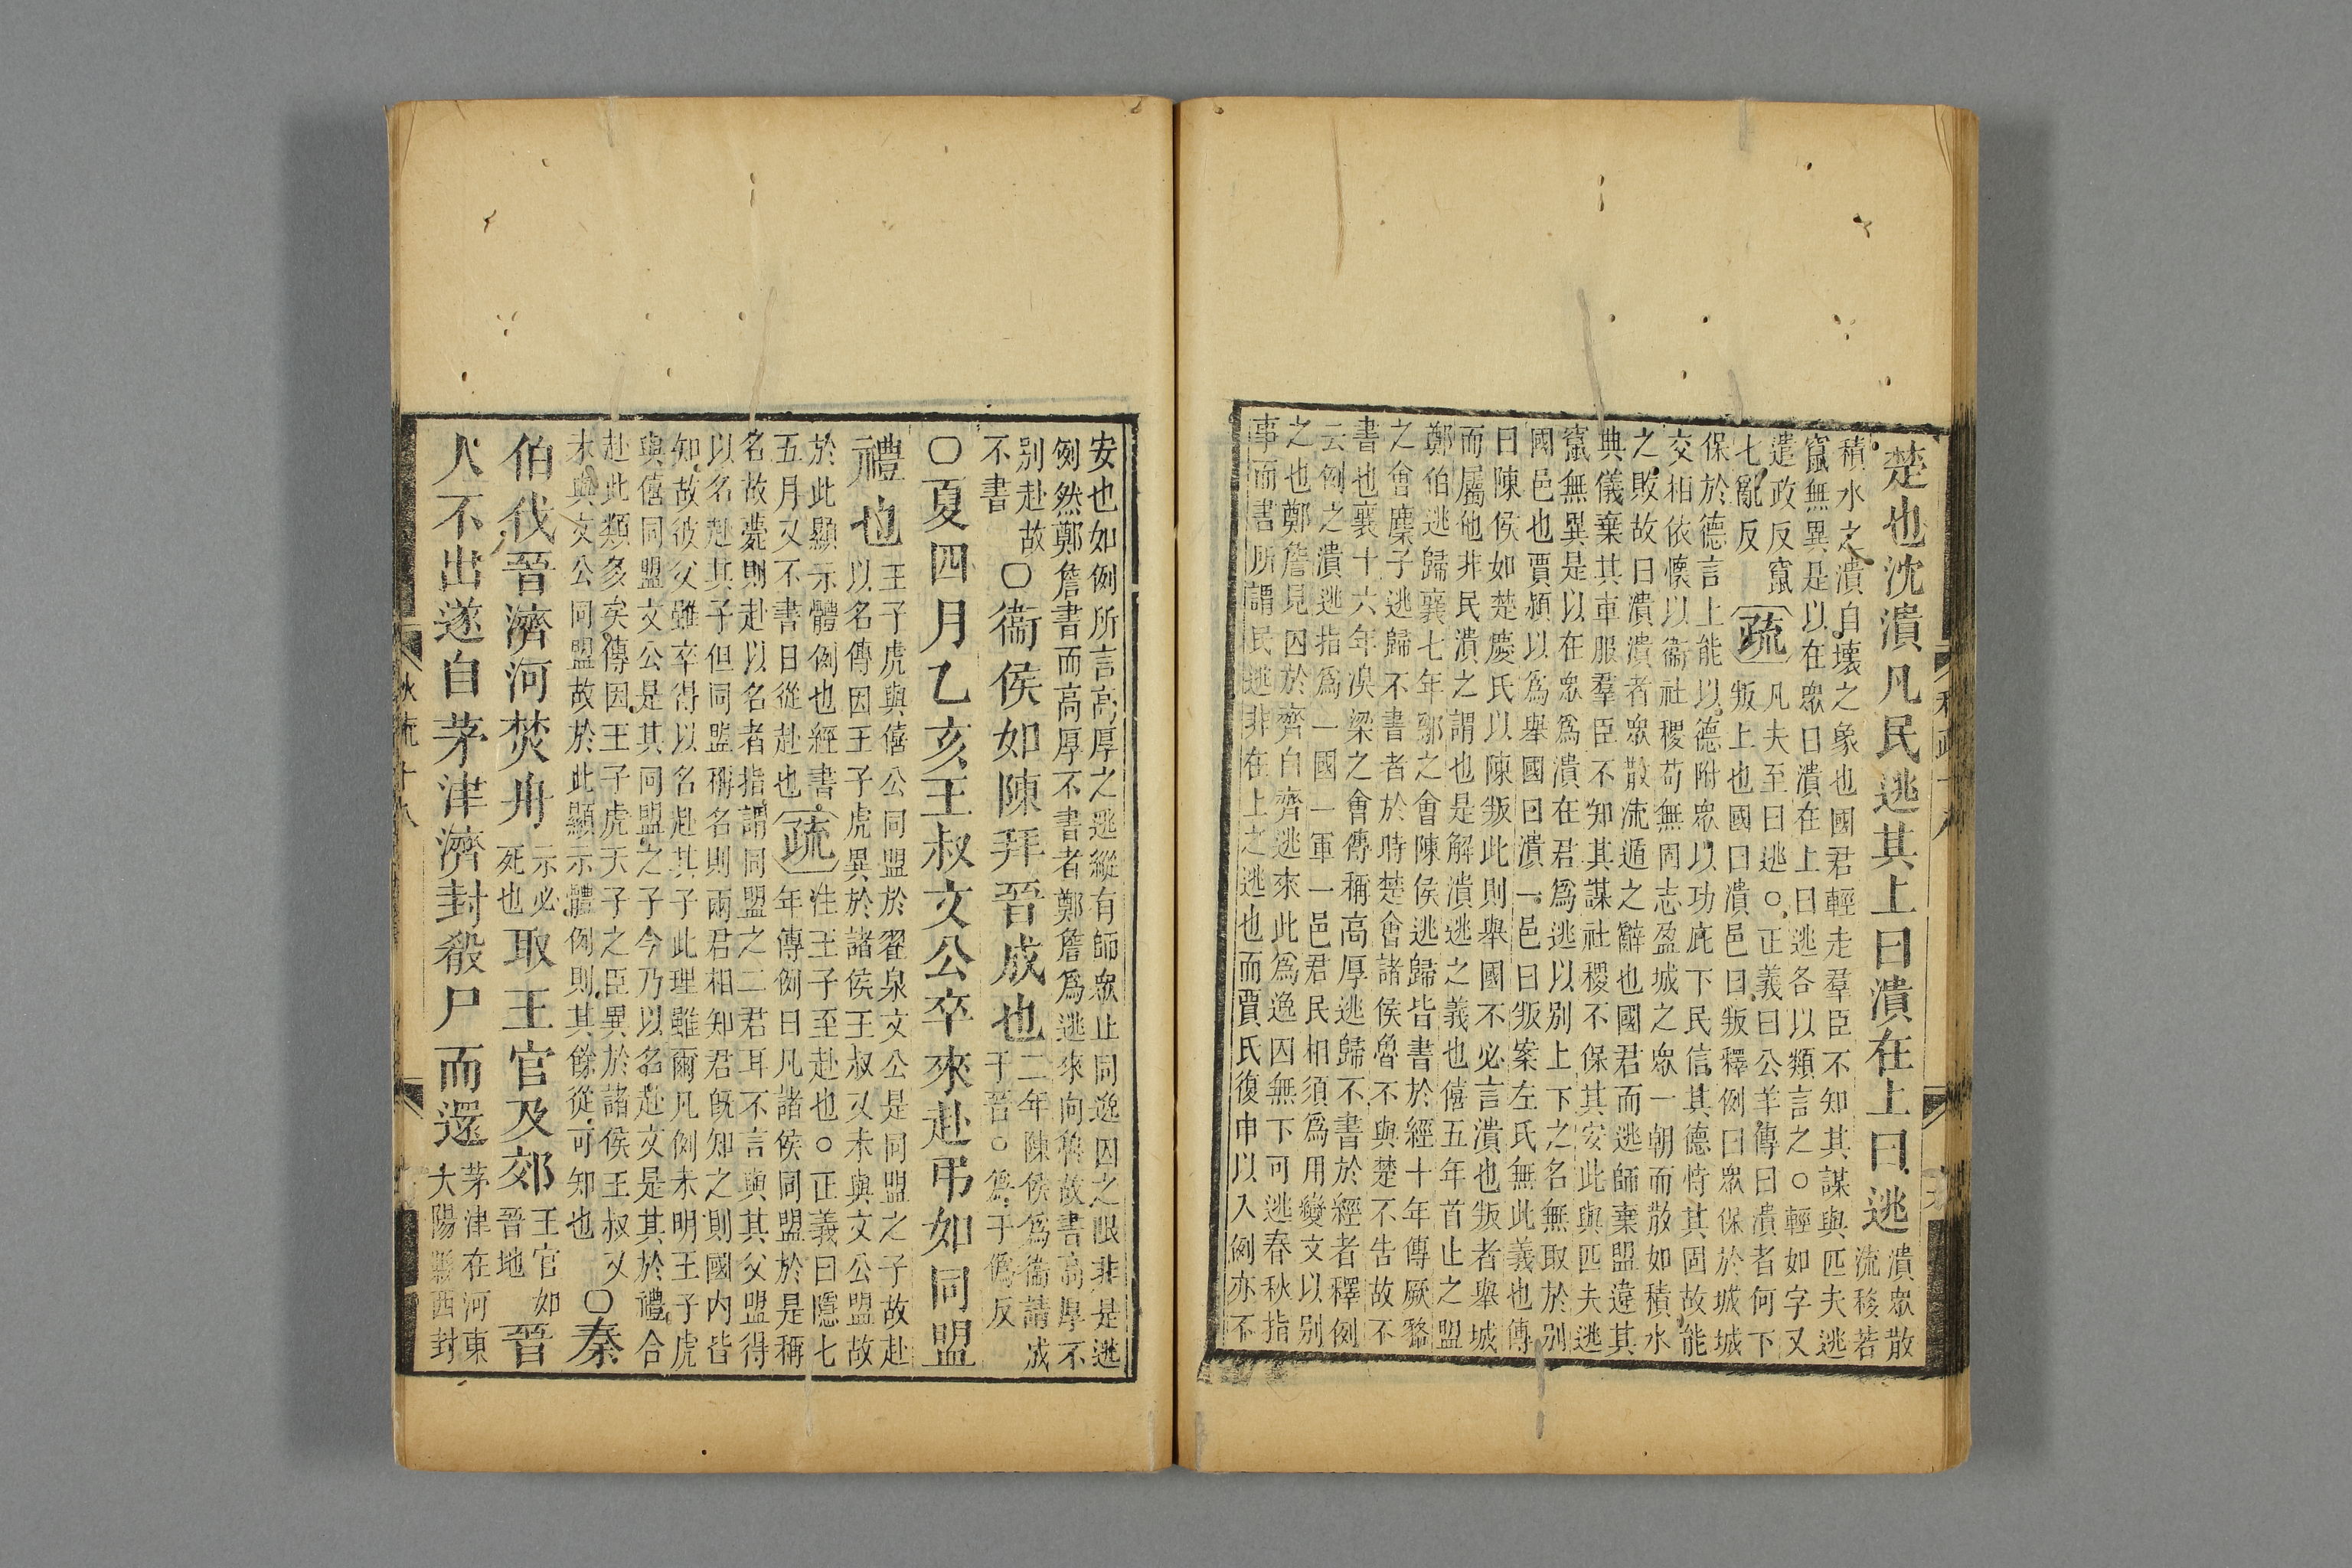 楚也沈潰凡民逃其上曰潰在上曰逃潰眾散
流移若
積水之潰自壞之象也國君輕走羣臣不知其謀與匹夫逃
竄無異是以在眾曰潰在上曰逃各以類言之○輕如字又
遣政反竄
七亂反
疏
凡夫至曰逃○正義曰公羊傳曰潰者何下
叛上也國曰潰邑曰叛釋例曰眾保於城城
保於德言上能以德附眾以功庇下民信其德恃其固故能
交相依懷以衞社稷苟無固志盈城之眾一朝而散如積水
之敗故曰潰潰者眾散流遁之辭也國君而逃師棄盟違其
典儀棄其車服羣臣不知其謀社稷不保其安此與匹夫逃
竄無異是以在眾爲潰在君爲逃以別上下之名無取於別
國邑也賈潁以爲舉國曰潰一邑曰叛案左氏無此義也傳
曰陳侯如楚慶氏以陳叛此則舉國不必言潰也叛者舉城
而屬他非民潰之謂也是解潰逃之義也僖五年首止之盟
鄭伯逃歸襄七年鄬之會陳侯逃歸皆書於經十年傳厥貉
之會麇子逃歸不書者於時楚會諸侯魯不與楚不告故不
書也襄十六年湨梁之會傳稱高厚逃歸不書於經者釋例
云例之潰逃指爲一國一軍一邑君民相須爲用變文以別
之也鄭詹見囚於齊自齊逃來此爲逸囚無下可逃春秋指
事而書所謂民逃非在上之逃也而賈氏復申以入例亦不
安也如例所言高厚之逃縱有師眾止同逸囚之限非是逃
例然鄭詹書而高厚不書者鄭詹爲逃來向魯故書高厚不
別赴故
不書
○衞侯如陳拜晉成也二年陳侯爲衞請成
于晉○爲于僞反
○夏四月乙亥王叔文公卒來赴弔如同盟
禮也王子虎與僖公同盟於翟泉文公是同盟之子故赴
以名傳因王子虎異於諸侯王叔又未與文公盟故
於此顯示體例也經書
五月又不書日從赴也
疏
注王子至赴也○正義曰隱七
年傳例曰凡諸侯同盟於是稱
名故薨則赴以名者指謂同盟之二君耳不言與其父盟得
以名赴其子但同盟稱名則兩君相知君旣知之則國內皆
知故彼父雖卒得以名赴其子此理雖爾凡例未明王子虎
與僖同盟文公是其同盟之子今乃以名赴文是其於禮合
赴此類多矣傳因王子虎天子之臣異於諸侯王叔又
未與文公同盟故於此顯示體例則其餘從可知也
○秦
伯伐晉濟河焚舟示必
死也取王官及郊王官如
晉地晉
人不出遂自茅津濟封殽尸而還茅津在河東
大陽縣西封